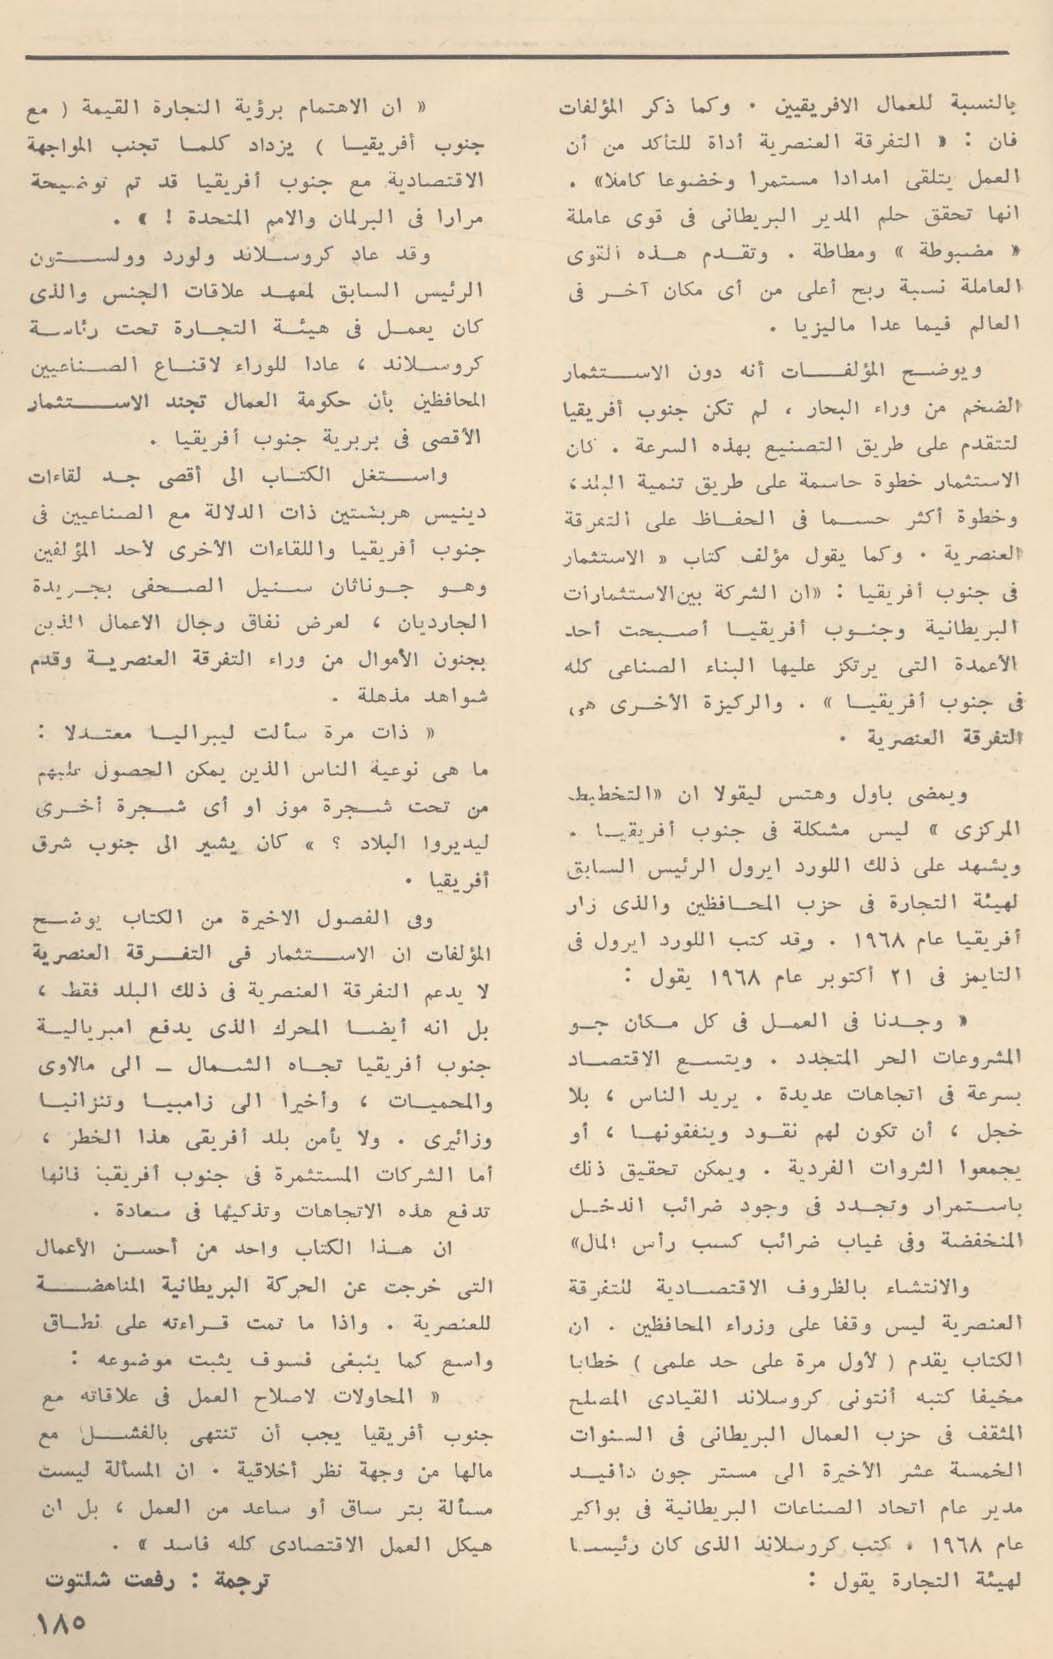 بالنسبة للعمال الافريقيين . وكما ذكر المؤلفات
فان : « التفرقة العنصرية أداة للتأكد من أن
العمل يتلقى امدادا مستمرا وخضوعا كاملا» .
انها تحقق حلم المدير البريطانى فى قوى عاملة
« مضبوطة » ومطاطة . وتقدم هذه القوى
العاملة نسبة ربح أعلى من أى مكان آخر فى
العالم فيما عدا ماليزيا .
ويوضح المؤلفات أنه دون الاستثمار
الضخم من وراء البحار ، لم تكن جنوب أفريقيا
لتتقدم على طريق التصنيع بهذه السرعة . كان
الاستثمار خطوة حاسمة على طريق تنمية البلد،
وخطوة أكثر حسما فى الحفاظ على التفرقة
العنصرية . وكما يقول مؤلف كتاب « الاستثمار
فى جنوب أفريقيا : «ان الشركة بين الاستثمارات
البريطانية وجنوب أفريقيا أصبحت أحد
الأعمدة التى يرتكز عليها البناء الصناعى كله
فى جنوب أفريقيا » . والركيزة الأخرى هى
التفرقة العنصرية .
ويمضى باول وهتس ليقولا ان «التخطيط
المركزى » ليس مشكلة فى جنوب أفريقيا .
ويشهد على ذلك اللورد ايرول الرئيس السابق
لهيئة التجارة فى حزب المحافظين والذى زار
أفريقيا عام ١٩٦٨ . وقد كتب اللورد ايرول فى
التايمز فى ٢١ أكتوبر عام ١٩٦٨ يقول :
« وجدنا فى العمل فى كل مكان جو
المشروعات الحر المتجدد . ويتسع الاقتصاد
بسرعة فى اتجاهات عديدة . يريد الناس ، بلا
خجل ، أن تكون لهم نقود وينفقونها ، أو
يجمعوا الثروات الفردية . ويمكن تحقيق ذلك
باستمرار وتجدد فى وجود ضرائب الدخل
المنخفضة وفى غياب ضرائب كسب رأس المال»
والانتشاء بالظروف الاقتصادية للتفرقة
العنصرية ليس وقفا على وزراء المحافظين . ان
الكتاب يقدم ( لأول مرة على حد علمى ) خطابا
مخيفا كتبه أنتونى كروسلاند القيادى المصلح
المثقف فى حزب العمال البريطانى فى السنوات
الخمسة عشر الأخيرة الى مستر جون دافيد
مدير عام اتحاد الصناعات البريطانية فى بواكير
عام ١٩٦٨ . كتب كروسلاند الذى كان رئيسا
لهيئة التجارة يقول :
« ان الاهتمام برؤية التجارة القيمة ( مع
جنوب أفريقيا ) يزداد كلما تجنب المواجهة
الاقتصادية مع جنوب أفريقيا قد تم توضيحة
مرارا فى البرلمان والامم المتحدة ! » .
وقد عاد كروسلاند ولورد وولستون
الرئيس السابق لمعهد علاقات الجنس والذى
كان يعمل فى هيئة التجارة تحت رئاسة
كروسلاند ، عادا للوراء لاقناع الصناعيين
المحافظين بأن حكومة العمال تجند الاستثمار
الأقصى فى بربرية جنوب أفريقيا .
واستغل الكتاب الى أقصى حد لقاءات
دينيس هربشتين ذات الدلالة مع الصناعيين فى
جنوب أفريقيا واللقاءات الأخرى لأحد المؤلفين
وهو جوناثان ستيل الصحفى بجريدة
الجارديان ، لعرض نفاق رجال الاعمال الذين
يجنون الأموال من وراء التفرقة العنصرية وقدم
شواهد مذهلة .
« ذات مرة سألت ليبراليا معتدلا :
ما هى نوعية الناس الذين يمكن الحصول عليهم
من تحت شجرة موز او أى شجرة أخرى
ليديروا البلاد ؟ » كان يشير الى جنوب شرق
أفريقيا .
وفى الفصول الاخيرة من الكتاب يوضح
المؤلفات ان الاستثمار فى التفرقة العنصرية
لا يدعم التفرقة العنصرية فى ذلك البلد فقط ،
بل انه أيضا المحرك الذى يدفع امبريالية
جنوب أفريقيا تجاه الشمال – الى مالاوى
والمحميات ، وأخيرا الى زامبيا وتنزانيا
وزائيرى . ولا يأمن بلد أفريقى هذا الخطر ،
أما الشركات المستثمرة فى جنوب أفريقيا فانها
تدفع هذه الاتجاهات وتذكيها فى سعادة .
ان هذا الكتاب واحد من أحسن الأعمال
التى خرجت عن الحركة البريطانية المناهضة
للعنصرية . واذا ما تمت قراءته على نطاق
واسع كما ينبغى فسوف يثبت موضوعه :
« المحاولات لاصلاح العمل فى علاقاته مع
جنوب أفريقيا يجب أن تنتهى بالفشل مع
مالها من وجهة نظر أخلاقية . ان المسألة ليست
مسألة بتر ساق أو ساعد من العمل ، بل ان
هيكل العمل الاقتصادى كله فاسد » .
ترجمة : رفعت شلتوت
١٨٥